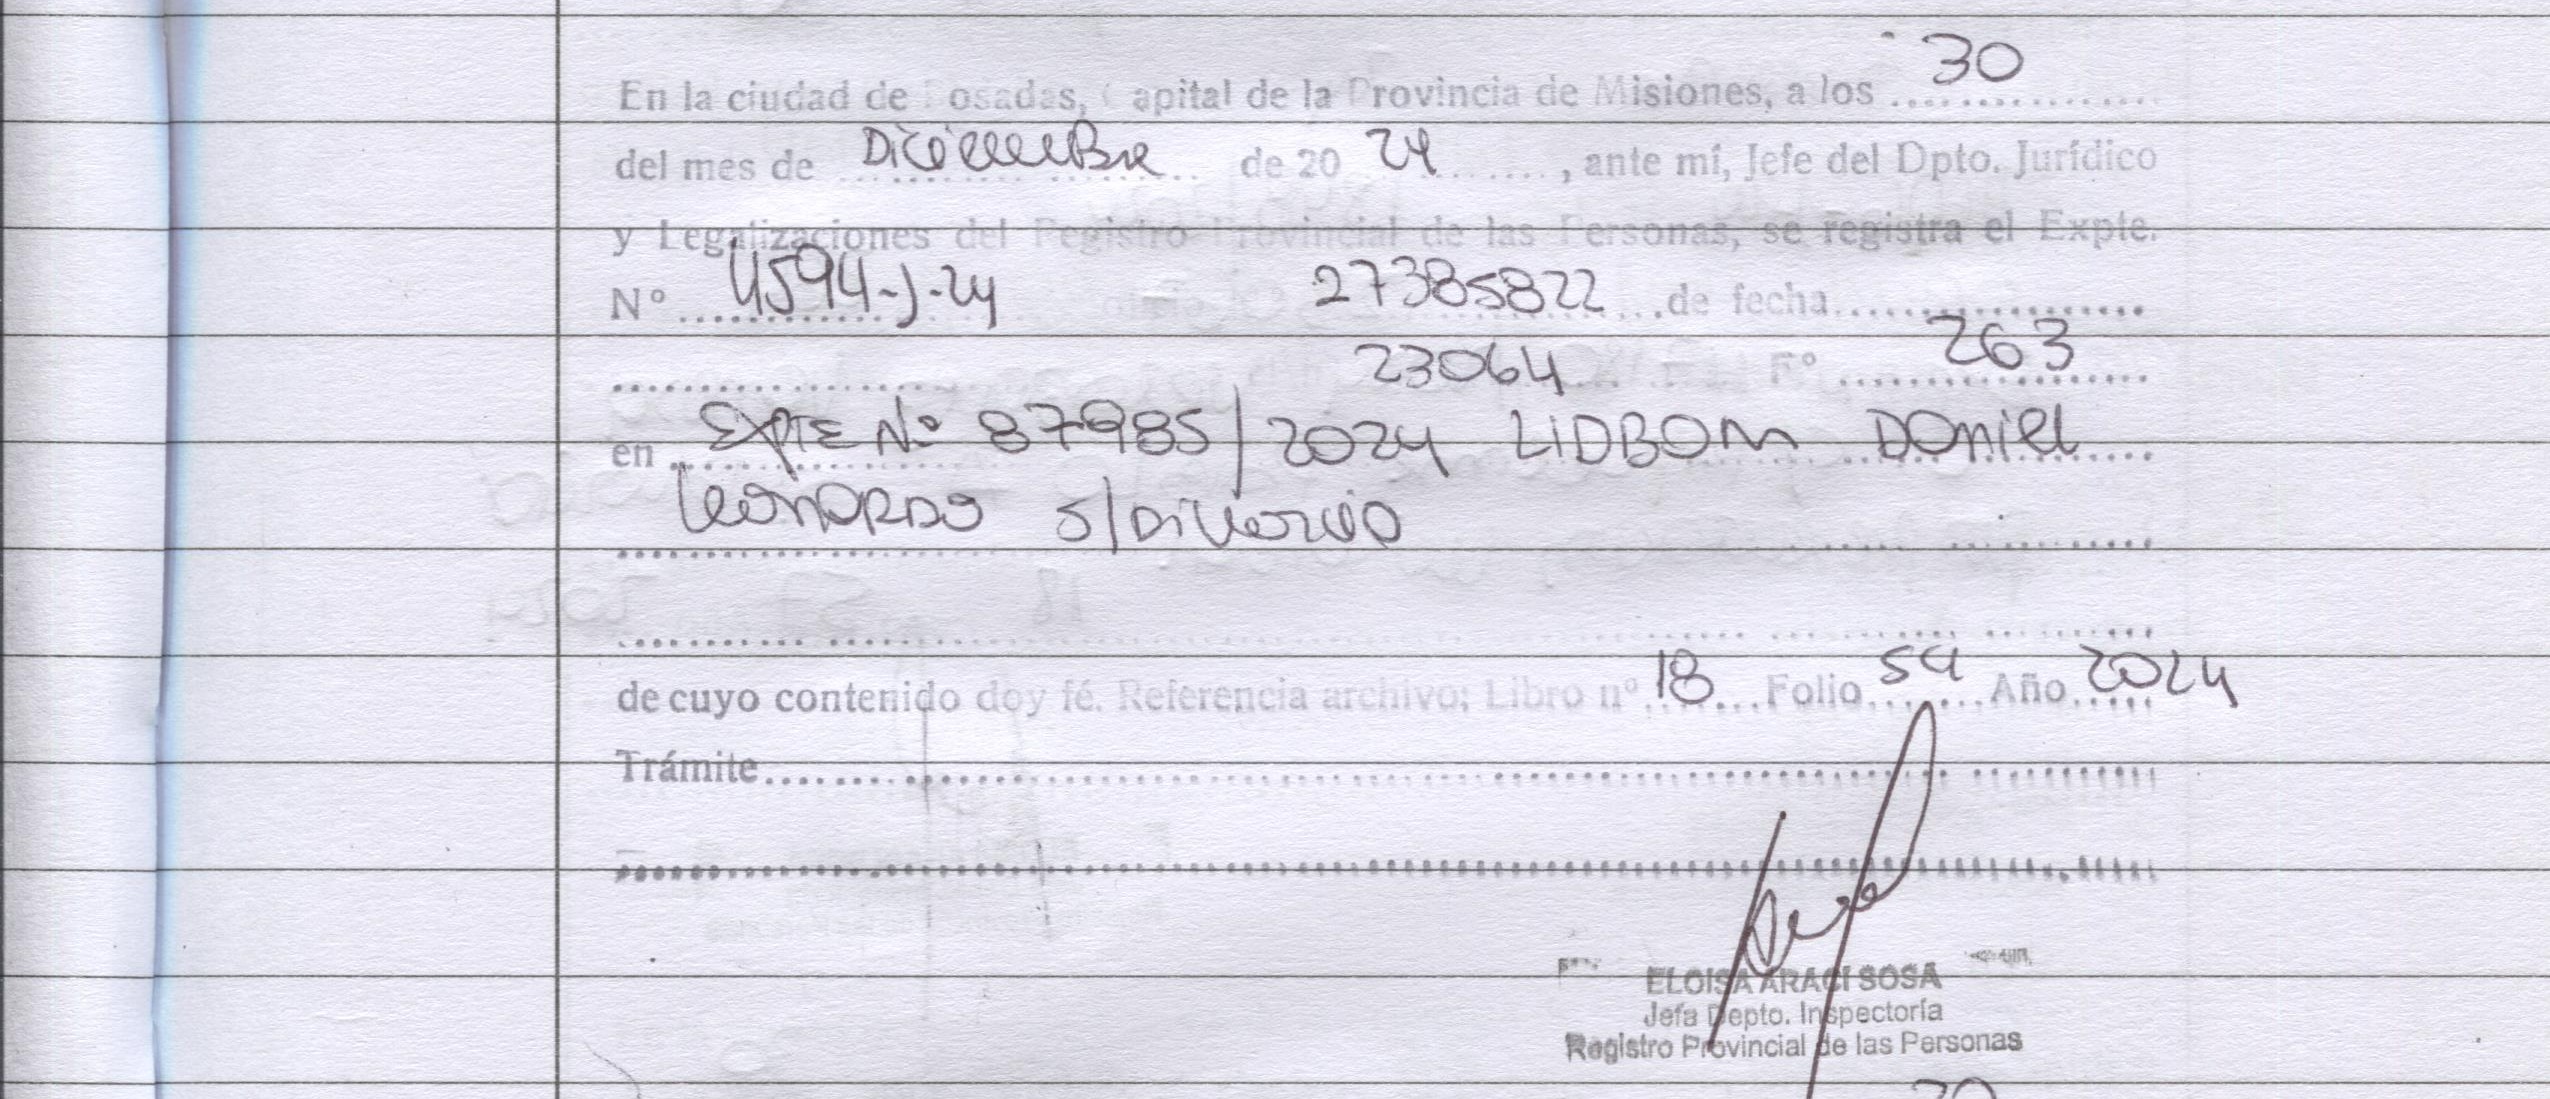 En la ciudad de Posadas, Capital de la Provincia de Misiones, a los 30
del mes de Diciembre de 20 24, ante mí, Jefe del Dpto. Jurídico
y Legalizaciones del Registro Provincial de las Personas, se registra el Expte.
Nº 4594-J-24 27385822 de fecha
23064 Fº 263
en Expte Nº 87985/2024 LIDBOM Daniel
Leonardo S/Divorcio
de cuyo contenido doy fé. Referencia archivo; Libro nº 18 Folio 54 Año 2024
Trámite
ELOISA ARACI SOSA
Jefa Depto. Inspectoría
Registro Provincial de las Personas